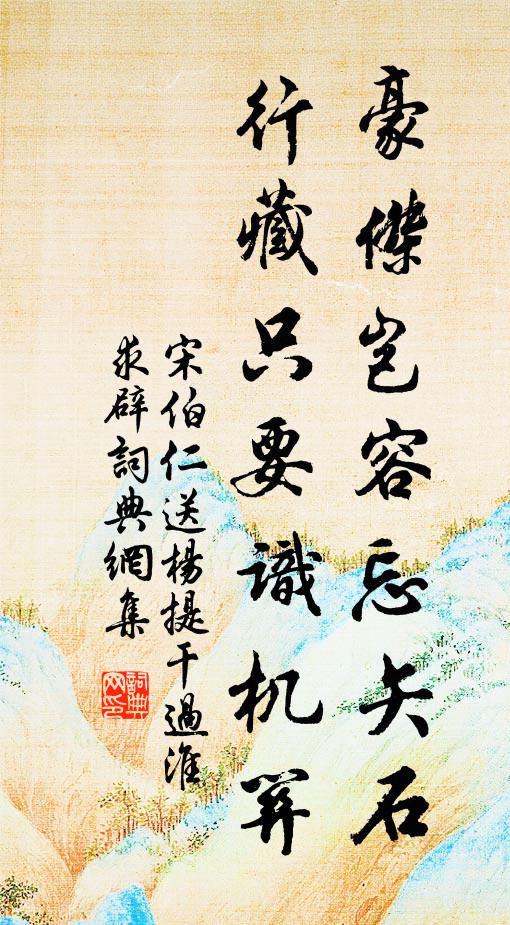 豪傑岂容忘矢石
行藏只要識机關
宋伯仁送楊提干過淮
求辟詞典網集
詞典
网印